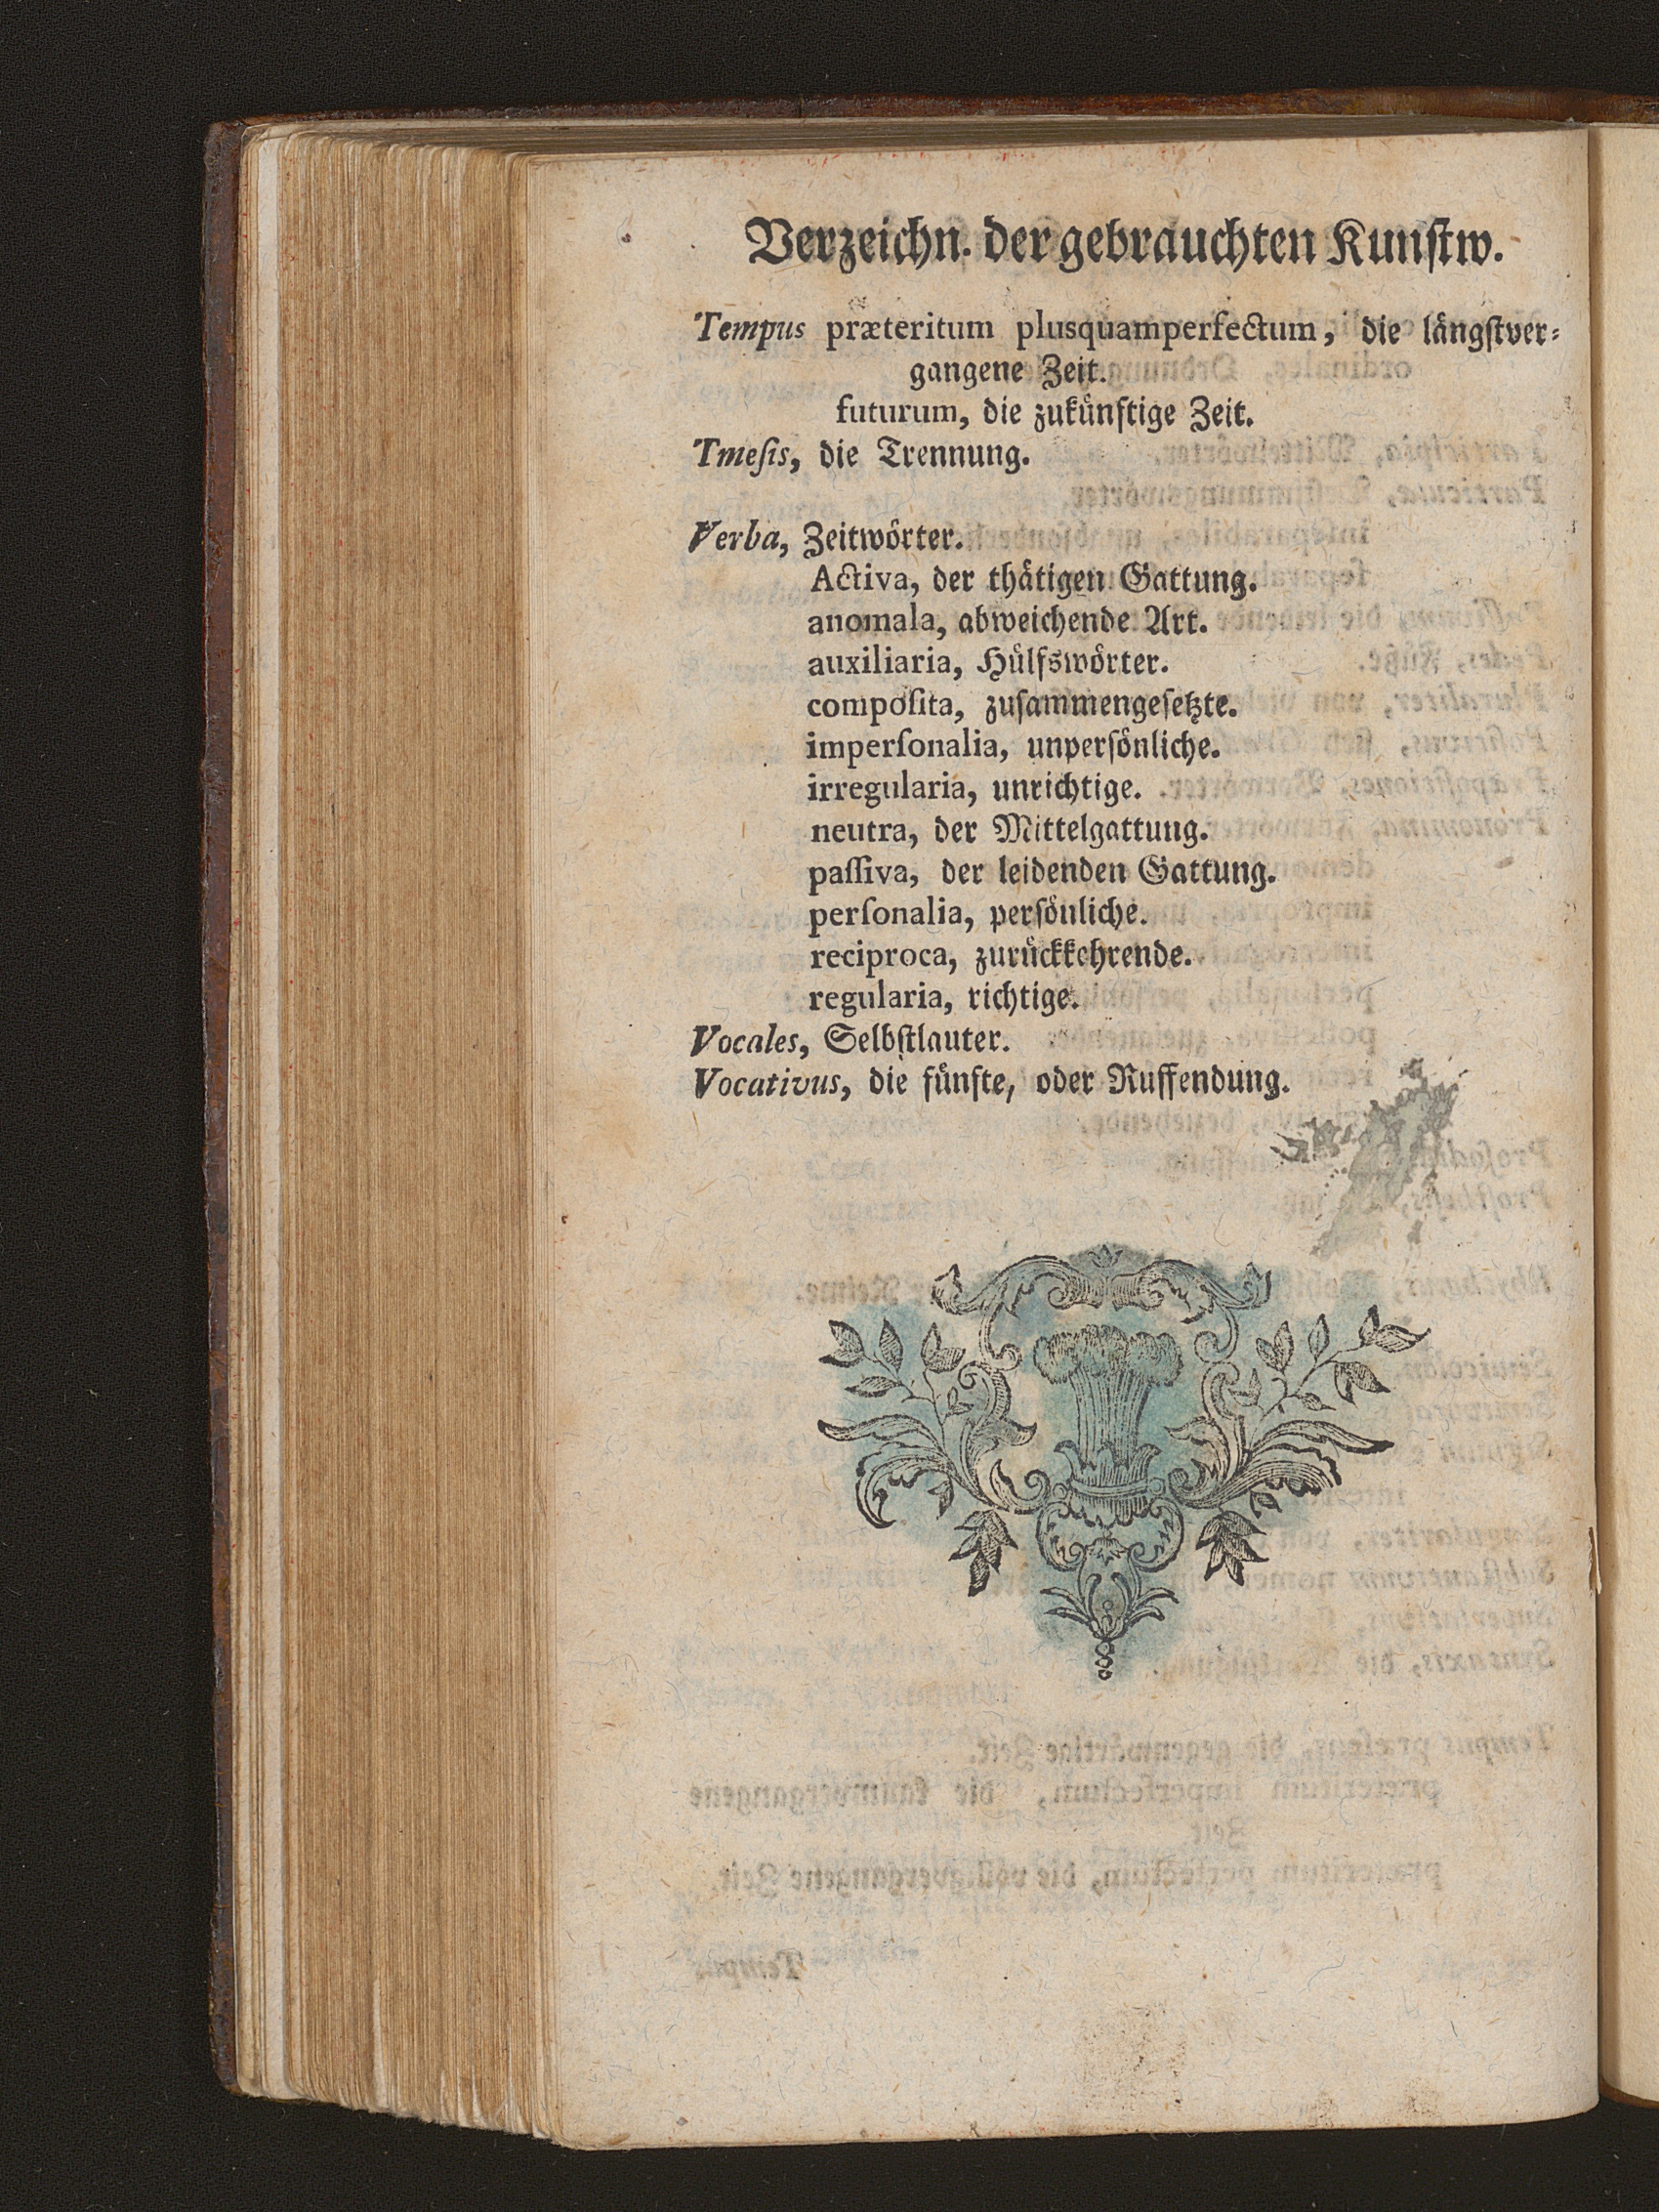 Verzeichn. der gebrauchten Kunſtw.
Tempus præteritum plusquamperfectum, die lǎngſtver⸗
gangene Zeit.
futurum, die zukuͤnftige Zeit.
Tmeſis, die Trennung.
Verba, Zeitwoͤrter.
Activa, der thaͤtigen Gattung.
anomala, abweichende Art.
auxiliaria, Huͤlfswoͤrter.
compoſita, zuſammengeſetzte.
imperſonalia, unperſoͤnliche.
irregularia, unrichtige.
neutra, der Mittelgattung.
paſſiva, der leidenden Gattung.
perſonalia, perſoͤnliche.
reciproca, zuruͤckkehrende.
regularia, richtige.
Vocales, Selbſtlauter.
Vocativus, die fuͤnfte, oder Ruffendung.